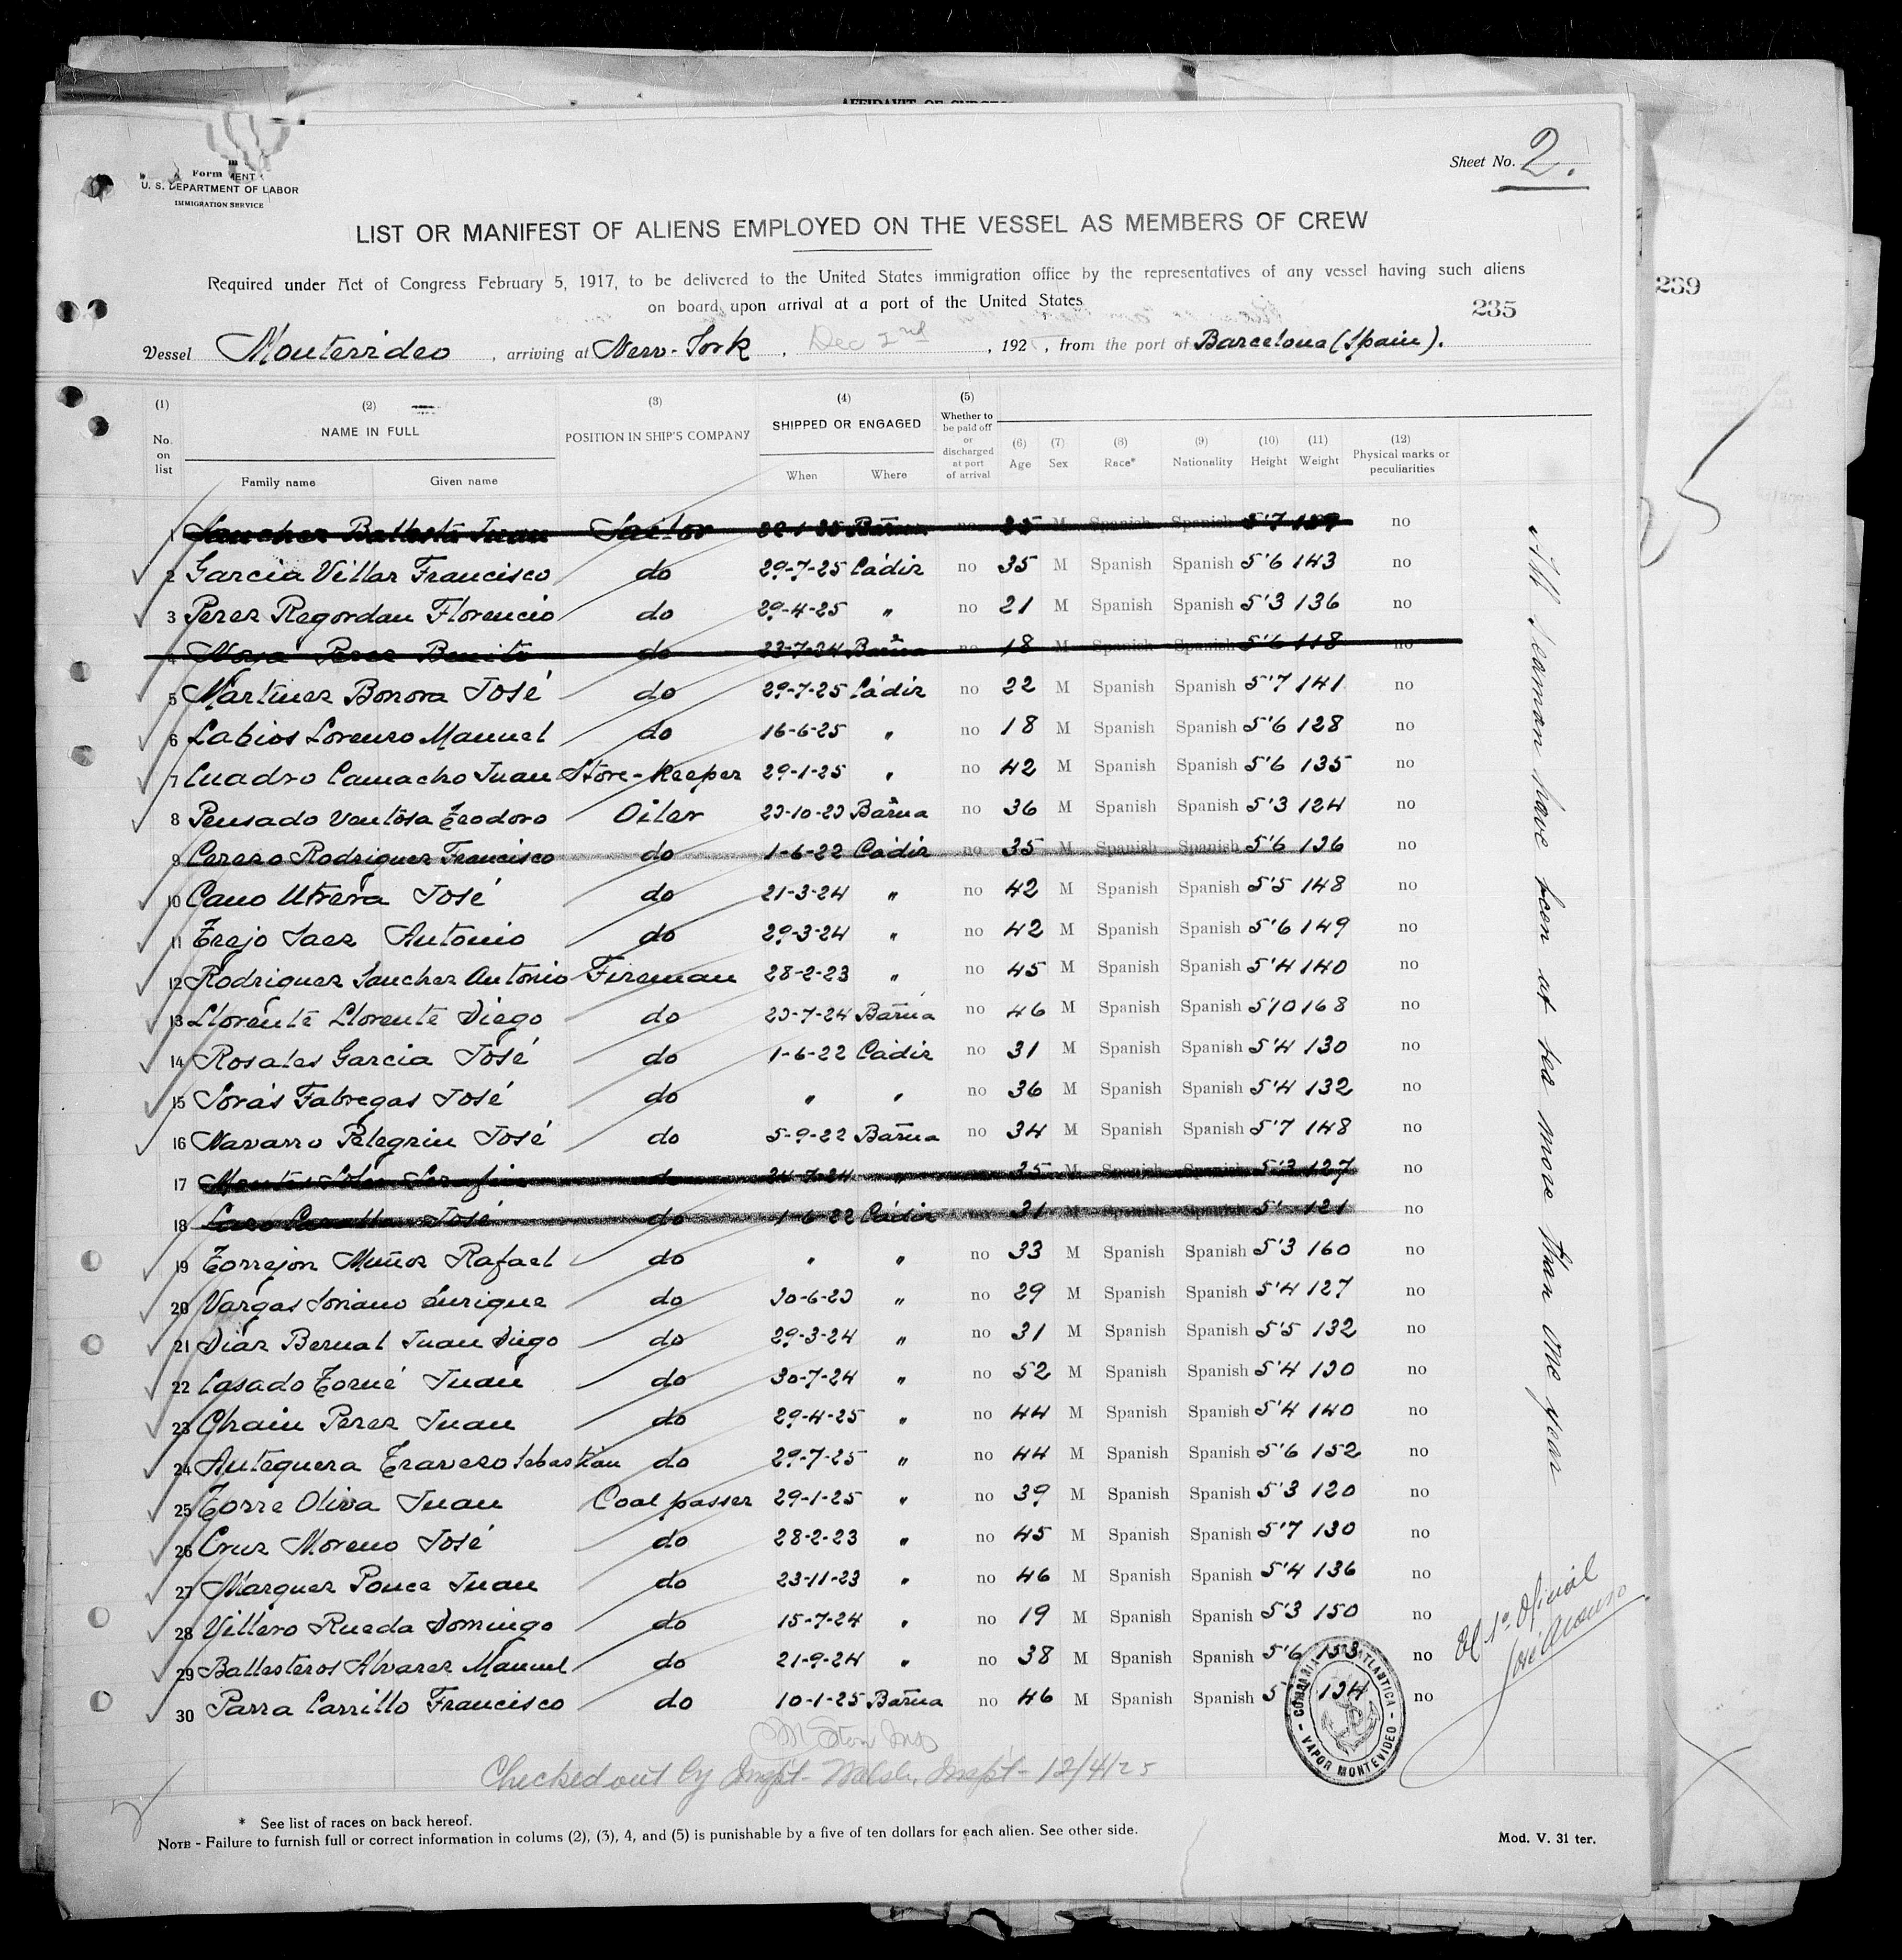 AFFIDAVIT OF SURGEON
Form
U. S. DEPARTMENT OF LABOR
IMMIGRATION SERVICE
Sheet No. 2.
LIST OR MANIFEST OF ALIENS EMPLOYED ON THE VESSEL AS MEMBERS OF CREW
Required under Act of Congress February 5, 1917, to be delivered to the United States immigration office by the representatives of any vessel having such aliens
on board upon arrival at a port of the United States
235
239
Vessel Montevideo, arriving at New-York, Dec 2nd, 192 , from the port of Barcelona (Spain).
(1) No. on list (2) NAME IN FULL Family name Given name (3) POSITION IN SHIP'S COMPANY (4) SHIPPED OR ENGAGED When Where (5) Whether to be paid off or discharged at port of arrival (6) Age (7) Sex (8) Race* (9) Nationality (10) Height (11) Weight (12) Physical marks or peculiarities
1 Sanchez Ballesta Juan Sailor 22-1-25 Barna no 25 M Spanish Spanish 5'7 159 no
2 Garcia Villar Francisco do 29-7-25 Cádiz no 35 M Spanish Spanish 5'6 143 no
3 Perez Regordan Florencio do 29-4-25 " no 21 M Spanish Spanish 5'3 136 no
4 Perez Benito do 23-7-24 Barna no 18 M Spanish Spanish 5'6 118 no
5 Martinez Bonora José do 29-7-25 Cádiz no 22 M Spanish Spanish 5'7 141 no
6 Labios Lorenzo Manuel do 16-6-25 " no 18 M Spanish Spanish 5'6 128 no
7 Cuadro Camacho Juan Store-Keeper 29-1-25 " no 42 M Spanish Spanish 5'6 135 no
8 Pensado Ventosa Teodoro Oiler 23-10-23 Barna no 36 M Spanish Spanish 5'3 124 no
9 Cerero Rodriguez Francisco do 1-6-22 Cádiz no 35 M Spanish Spanish 5'6 136 no
10 Cano Utrera José do 21-3-24 " no 42 M Spanish Spanish 5'5 148 no
11 Trejo Saez Antonio do 29-3-24 " no 42 M Spanish Spanish 5'6 149 no
12 Rodriguez Sanchez Antonio Fireman 28-2-23 " no 45 M Spanish Spanish 5'4 140 no
13 Llorente Llorente Diego do 23-7-24 Barna no 46 M Spanish Spanish 5'10 168 no
14 Rosales Garcia José do 1-6-22 Cádiz no 31 M Spanish Spanish 5'4 130 no
15 Sorás Fabregas José do " " no 36 M Spanish Spanish 5'4 132 no
16 Navarro Pelegrin José do 5-9-22 Barna no 34 M Spanish Spanish 5'7 148 no
17 do 24-7-24 " 35 M Spanish Spanish 5'3 127 no
18 José do 1-6-22 Cádiz 31 M Spanish Spanish 5' 121 no
19 Torrejon Muñoz Rafael do " " no 33 M Spanish Spanish 5'3 160 no
20 Vargas Soriano Enrique do 30-6-23 " no 29 M Spanish Spanish 5'4 127 no
21 Diaz Bernal Juan Diego do 29-3-24 " no 31 M Spanish Spanish 5'5 132 no
22 Casado Torné Juan do 30-7-24 " no 52 M Spanish Spanish 5'4 130 no
23 Chain Perez Juan do 29-4-25 " no 44 M Spanish Spanish 5'4 140 no
24 Antequera Travero Sebastian do 29-7-25 " no 44 M Spanish Spanish 5'6 152 no
25 Torre Oliva Juan Coal passer 29-1-25 " no 39 M Spanish Spanish 5'3 120 no
26 Cruz Moreno José do 28-2-23 " no 45 M Spanish Spanish 5'7 130 no
27 Marquez Ponce Juan do 23-11-23 " no 46 M Spanish Spanish 5'4 136 no
28 Villero Rueda Domingo do 15-7-24 " no 19 M Spanish Spanish 5'3 150 no
29 Ballesteros Alvarez Manuel do 21-9-24 " no 38 M Spanish Spanish 5'6 153 no
30 Parra Carrillo Francisco do 10-1-25 Barna no 46 M Spanish Spanish 5' 134 no
All seaman have been at sea more than one year
El 1º Oficial
José Alonso
COMPAÑIA TRASATLANTICA - VAPOR MONTEVIDEO
Checked out by Inspt- Walsh, Inspt- 12/4/25
* See list of races on back hereof.
NOTE - Failure to furnish full or correct information in colums (2), (3), 4, and (5) is punishable by a five of ten dollars for each alien. See other side.
Mod. V. 31 ter.